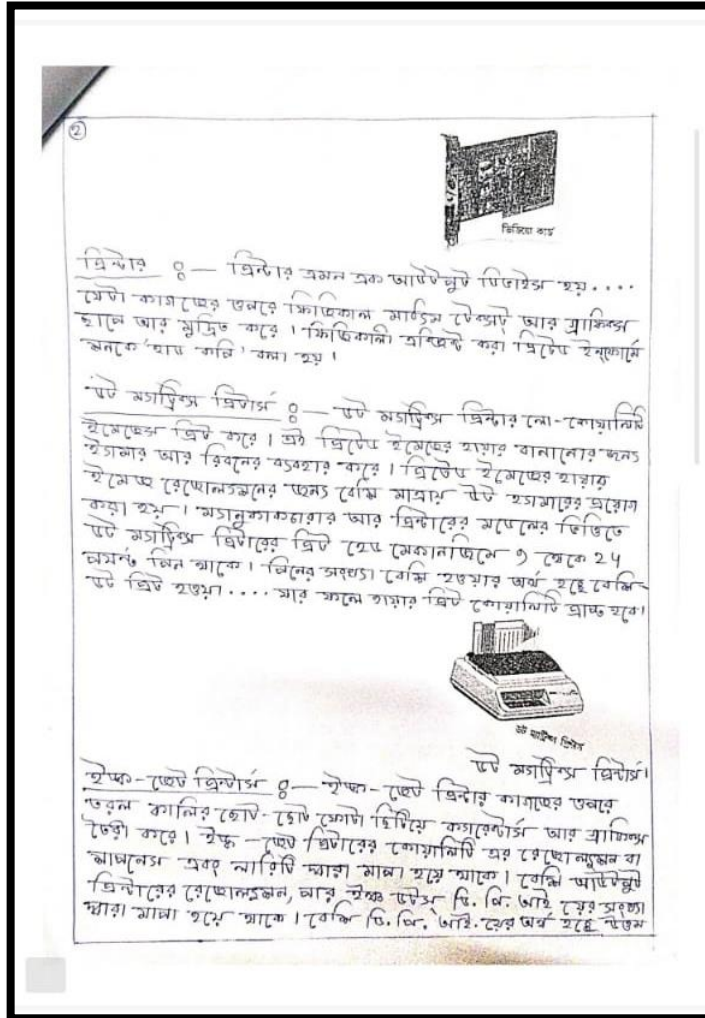 ২
ভিডিও কার্ড
প্রিন্টার ঃ— প্রিন্টার এমন এক আউটপুট ডিভাইস হয়....
যেটা কাগজের উপরে ফিজিকাল মাধ্যম টেক্সট আর গ্রাফিক্স
ছাপে আর মুদ্রিত করে। ফিজিকালী এপ্রিন্ট করা প্রিন্টেড ইনফোর্মে
সনকে 'হার্ড কপি' বলা হয়।
ডট ম্যাট্রিক্স প্রিন্টার্স ঃ— ডট ম্যাট্রিক্স প্রিন্টার লো-কোয়ালিটি
ইমেজেস প্রিন্ট করে। এই প্রিন্টেড ইমেজের হায়ার বানানোর জন্য
হ্যামার আর রিবনের ব্যবহার করে। প্রিন্টেড ইমেজের হায়ার
ইমেজ রেজোলেশনের জন্য বেশি মাত্রায় ডট হ্যামারের প্রয়োগ
করা হয়। ম্যানুফ্যাকচারার আর প্রিন্টারের মডেলের ভিত্তিতে
ডট ম্যাট্রিক্স প্রিন্টারের প্রিন্ট হেড মেকানাজিমে 9 থেকে 24
পর্যন্ত পিন থাকে। পিনের সংখ্যা বেশি হওয়ার অর্থ হচ্ছে বেশি-
ডট প্রিন্ট হওয়া.... যার ফলে হায়ার প্রিন্ট কোয়ালিটি প্রাপ্ত হবে।
ডট ম্যাট্রিক্স প্রিন্টার
ডট ম্যাট্রিক্স প্রিন্টার্স।
ইঙ্ক-জেট প্রিন্টার্স ঃ— ইঙ্ক-জেট প্রিন্টার কাগজের উপরে
তরল কালির ছোট-ছোট ফোটা ছিটিয়ে ক্যারেক্টার্স আর গ্রাফিক্স
তৈরী করে। ইঙ্ক-জেট প্রিন্টারের কোয়ালিটি এর রেজোলুশন বা
শার্পনেস এবং ক্লারিটি দ্বারা মাপা হয়ে থাকে। বেশি আউটপুট
প্রিন্টারের রেজোলুশন, আর ইঙ্ক ডটস্ ডি. পি. আই য়ের সংখ্যা
দ্বারা মাপা হয়ে থাকে। বেশি ডি. পি. আই. য়ের অর্থ হচ্ছে উত্তম